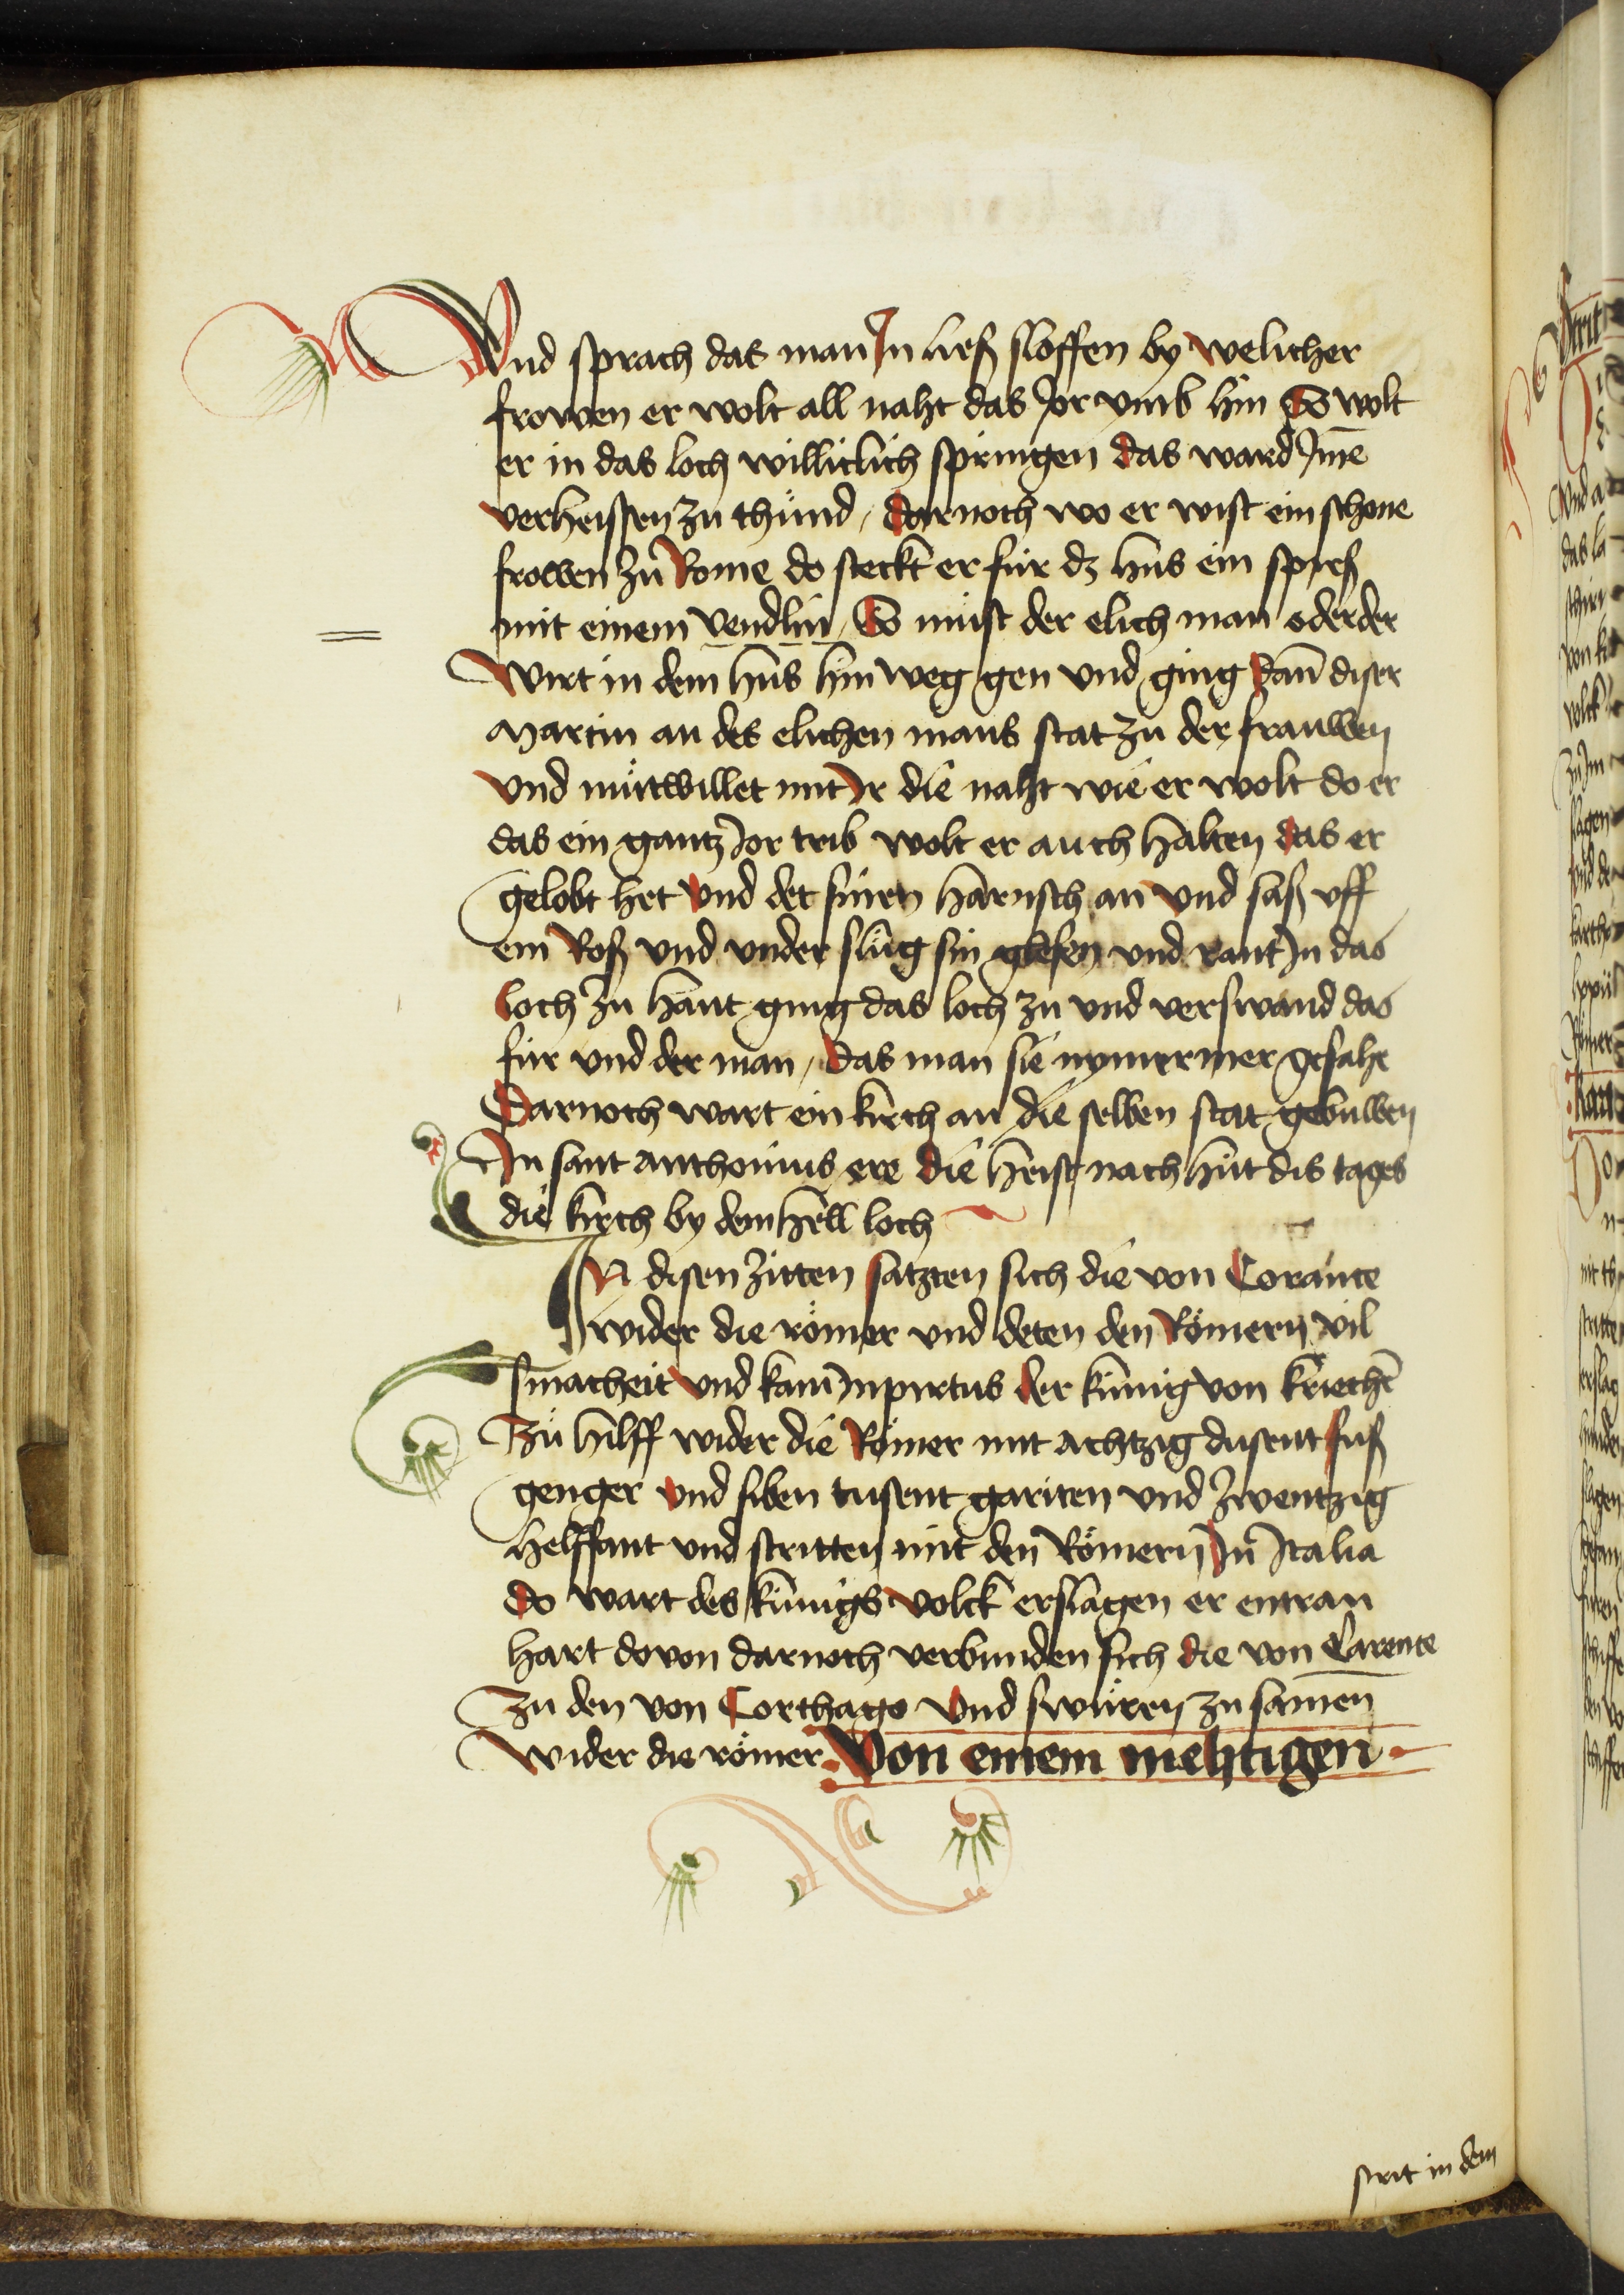 Vnd sprach das man Jn ließ sloffen by welicher
frowen er wolt all naht das Jor vmb hin So wolt
er in das loch williclich springen das ward Jme
verheissen zu thu̇nd / darnoch wo er wist ein schone
frowen zu̇ Rome do steckt er für dz hus ein spieß
mit einem vendlin / So mu̇st der elich man oder der
Wirt in dem hus hin weg gen vnd ging dañ diser
Martin an des elichen mans stat zu der frauwen
vnd mu̇twillet mit Jr die naht wie er wolt do er
das ein gantz Jor treib wolt er auch halten das er
gelobt het vnd det sinen harnsch an vnd saß vff
ein Roß vnd vnder slu̇g sin glefen vnd rant Jn das
loch zu hant ging das loch zu vnd verswand das
für vnd der man / das man sie nymermer gesahe
Darnoch wart ein kirch an die selben stat gebuwen
In sant Anthonius ere die heist nach hüt dis tages
die kirch by dem hell loch
IN disen zitten satzten sich die von Corante
wider die römer vnd deten den Römern vil
smacheit vnd kam Jnpirtus der künig von kriechẽ
Zu̇ hilff wider die Römer mit achtzig dusent fuß
genger vnd siben tusent gariten vnd zwentzig
helffant vnd stritten mit den Römern Jn Italia
do wart des künigs volck erslagen er entran
hart dovon darnoch verbunden sich die von Carente
Zu den von Corthago vnd swu̇ren zu samen
Wider die römer. Von einem mehtigen
strit in dem